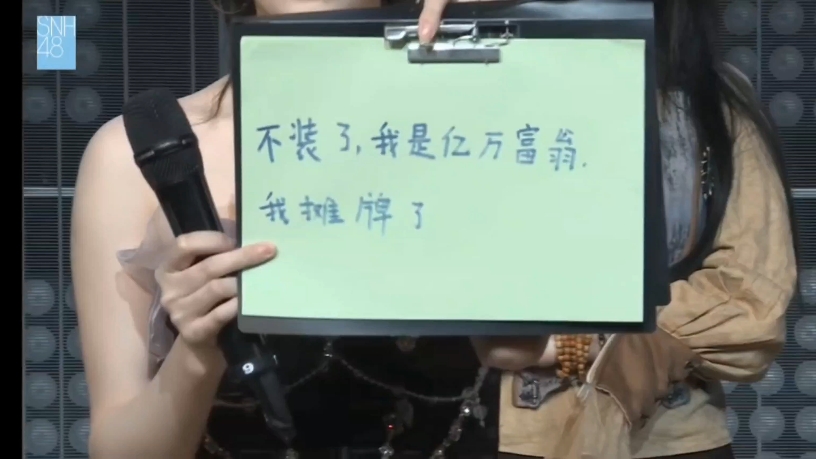 SNH
48
不装了,我是亿万富翁.
我摊牌了
9